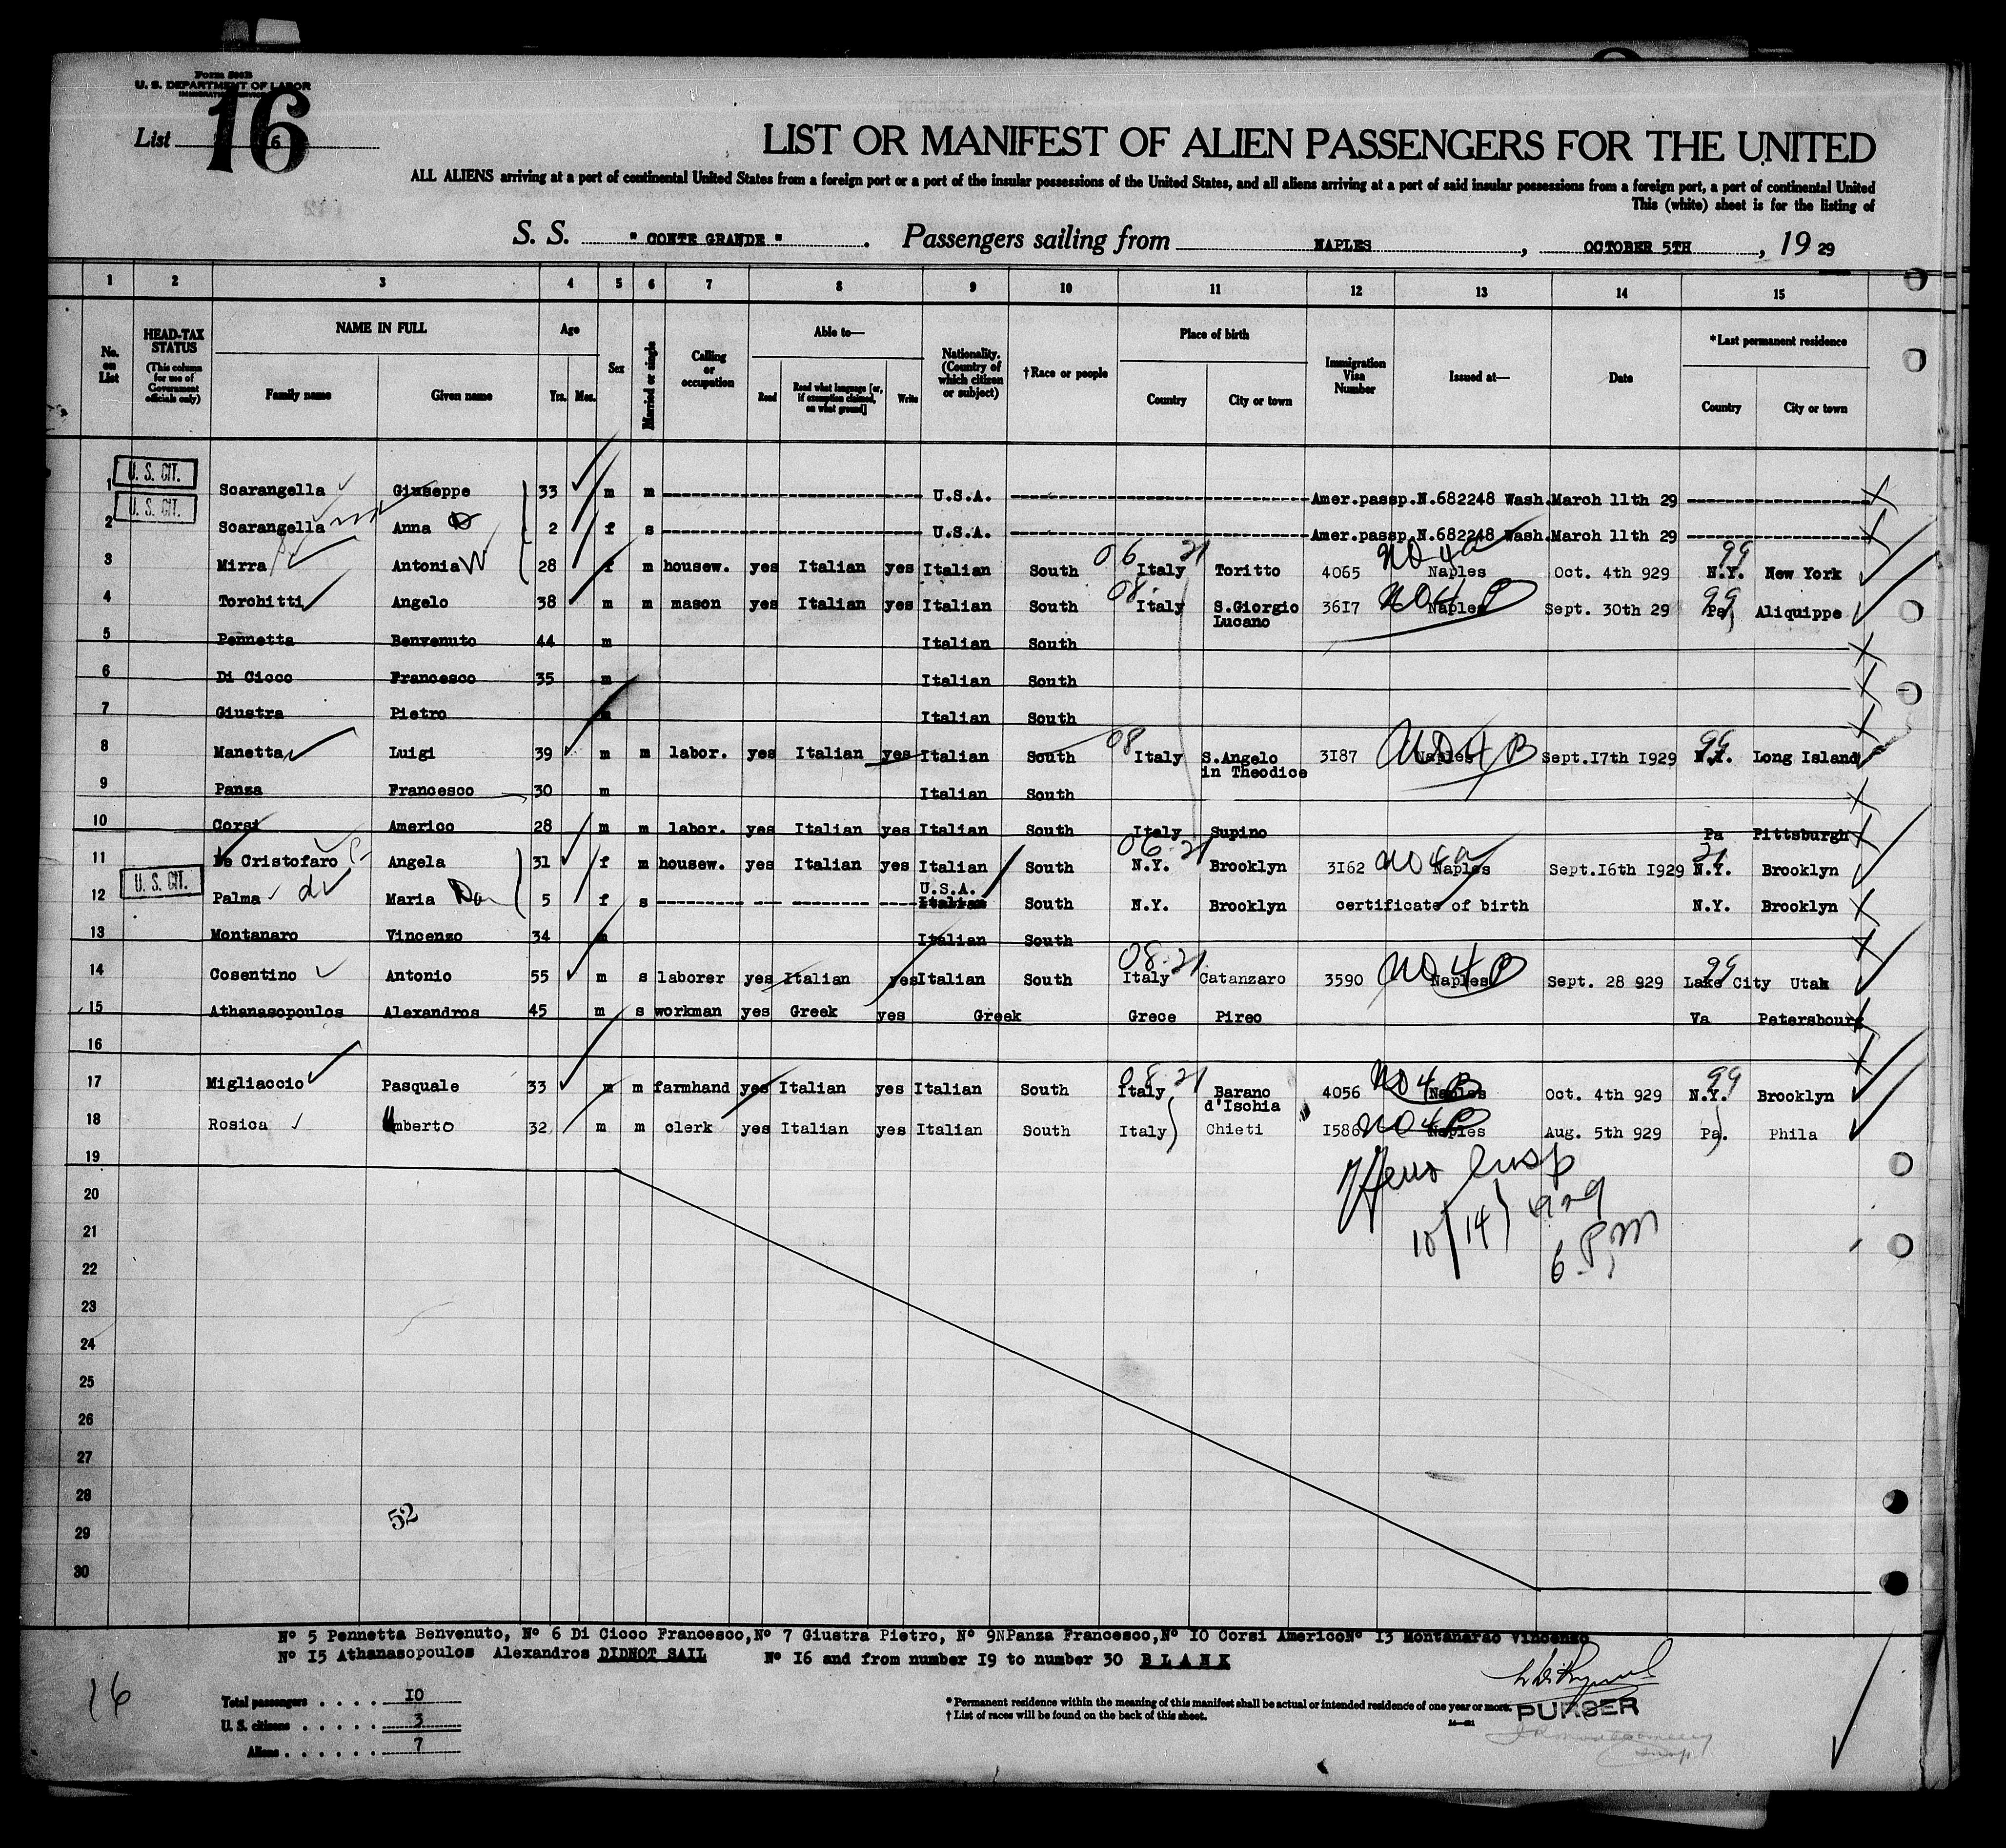 Form 500B
U. S. DEPARTMENT OF LABOR
List 16
6
LIST OR MANIFEST OF ALIEN PASSENGERS FOR THE UNITED
ALL ALIENS arriving at a port of continental United States from a foreign port or a port of the insular possessions of the United States, and all aliens arriving at a port of said insular possessions from a foreign port, a port of continental United
This (white) sheet is for the listing of
S. S. " CONTE GRANDE " . Passengers sailing from NAPLES , OCTOBER 5TH , 19 29
1 2 3 4 5 6 7 8 9 10 11 12 13 14 15
No. on List
HEAD-TAX STATUS (This column for use of Government officials only)
NAME IN FULL
Family name Given name
Age
Yrs. Mos.
Sex
Married or single
Calling or occupation
Able to—
Read Read what language [or, if exemption claimed, on what ground] Write
Nationality. (Country of which citizen or subject)
†Race or people
Place of birth
Country City or town
Immigration Visa Number
Issued at—
Date
*Last permanent residence
Country City or town
1 U. S. CIT. Scarangella Giuseppe 33 m m U.S.A. Amer.passp.N.682248 Wash.March 11th 29
2 U. S. CIT. Scarangella Anna 2 f s U.S.A. Amer.passp.N.682248 Wash.March 11th 29
3 Mirra Antonia W 28 f m housew. yes Italian yes Italian South 06 21 Italy Toritto 4065 NO 4a Naples Oct. 4th 929 99 N.Y. New York
4 Torchitti Angelo 38 m m mason yes Italian yes Italian South 08 Italy S.Giorgio Lucano 36I7 NO 4 B Naples Sept. 30th 29 99 Pa Aliquippe
5 Pennetta Benvenuto 44 m Italian South
6 Di Cicco Francesco 35 m Italian South
7 Giustra Pietro m Italian South
8 Manetta Luigi 39 m m labor. yes Italian yes Italian South 08 Italy S.Angelo in Theodice 3I87 NO 4 B Naples Sept.I7th I929 99 N.Y. Long Island
9 Panza Francesco 30 m Italian South
10 Corsi Americo 28 m m labor. yes Italian yes Italian South Italy Supino Pa Pittsburgh
11 De Cristofaro Angela 31 f m housew. yes Italian yes Italian South 06 21 N.Y. Brooklyn 3I62 NO 4a Naples Sept.I6th I929 21 N.Y. Brooklyn
12 U. S. CIT. Palma di Maria 5 f s U.S.A. Italian South N.Y. Brooklyn certificate of birth N.Y. Brooklyn
13 Montanaro Vincenzo 34 m Italian South
14 Cosentino Antonio 55 m s laborer yes Italian yes Italian South 08-21 Italy Catanzaro 3590 NO 4 B Naples Sept. 28 929 99 Lake City Utak
15 Athanasopoulos Alexandros 45 m s workman yes Greek yes Greek Grece Pireo Va Petersbourg
16
17 Migliaccio Pasquale 33 m m farmhand yes Italian yes Italian South 08 21 Italy Barano d'Ischia 4056 NO 4 B Naples Oct. 4th 929 99 N.Y. Brooklyn
18 Rosica Umberto 32 m m clerk yes Italian yes Italian South Italy Chieti I586 NO 4 B Naples Aug. 5th 929 Pa. Phila
19
20
21
22
23
24
25
26
27
28
29
30
insp
10/14/929
6 PM
52
Nº 5 Pennetta Benvenuto, Nº 6 Di Cicco Francesco,Nº 7 Giustra Pietro, Nº 9NPanza Francesco,Nº I0 Corsi AmericoNº I3 Montanarao Vincenzo
Nº I5 Athanasopoulos Alexandros DIDNOT SAIL Nº I6 and from number I9 to number 30 BLANK
16
Total passengers . . . . I0
U. S. citizens . . . . . 3
Aliens . . . . . . 7
* Permanent residence within the meaning of this manifest shall be actual or intended residence of one year or more.
† List of races will be found on the back of this sheet.
PURSER